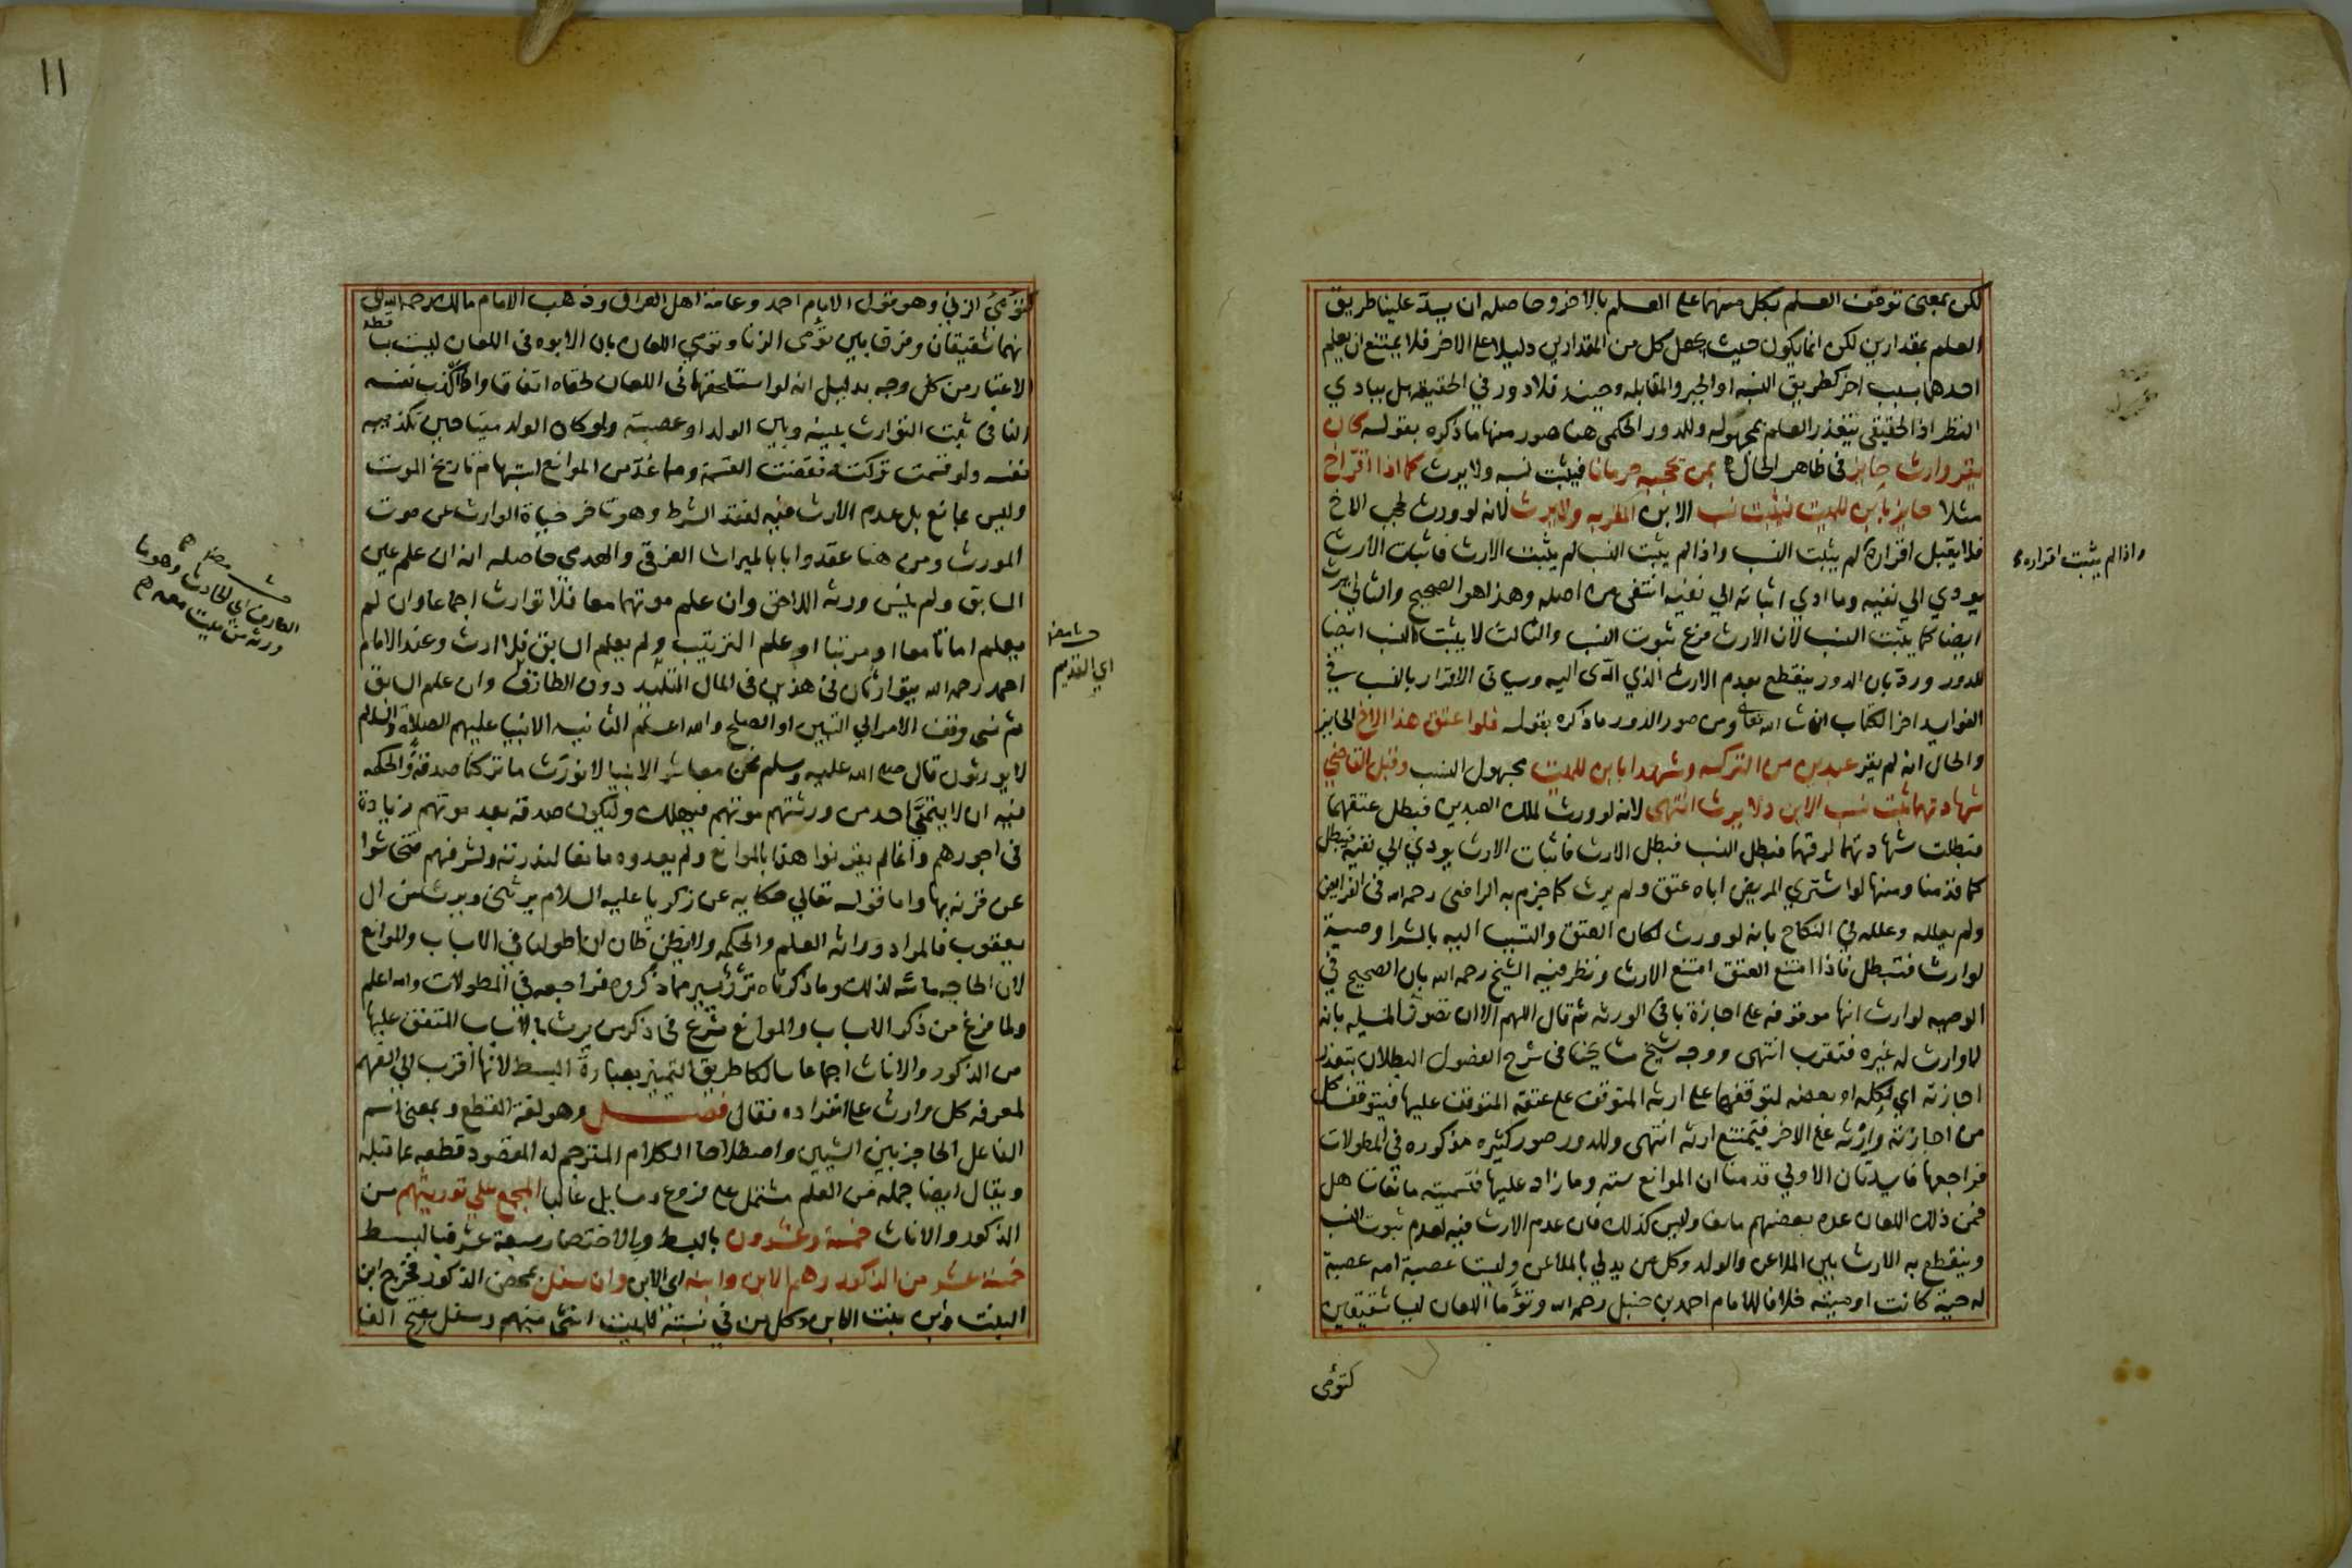 لكن بمعنى توقف العلم بكل منهما على العلم بالاخر وحاصله ان يسد علينا طريق
العلم بمقدارين لكن انما يكون حيث يجعل كل من المقدارين دليلا على الاخر فلا يمتنع ان يعلم
احدهما بسبب اخر كطريق النسبه او الجبر والمقابله وحينئذ فلا دور في الحقيقه بل ببادي
النظر اذ الحقيقي يتعذر العلم بمجهوله وللدور الحكمى هنا صور منها ما ذكره بقوله كان
يقر وارث حايز في ظاهر الحال بمن يحجبه حرمانا فيثبت نسبه ولا يرث كما اذا اقر اخ
مثلا حايز بابن للميت فيثبت نسب الابن المقر به ولا يرث لانه لو ورث لحجب الاخ
فلا يقبل اقراره لم يثبت النسب واذا لم يثبت النسب لم يثبت الارث فاثبات الارث
يودي الي نفيه وما ادي اثباته الي نفيه انتفى من اصله وهذا هو الصحيح والثاني يرث
ايضا كما يثبت النسب لان الارث فرع ثبوت النسب والثالث لا يثبت النسب ايضا
للدور ورد بان الدور ينقطع بعدم الارث الذي ادى اليه وسياتى الاقرار بالنسب في
الفوايد اخر الكتاب ان شا الله تعالى ومن صور الدور ما ذكره بقوله فلو اعتق هذا الاخ الحايز
والحال انه لم يقر عبدين من التركه وشهدا بابن للميت مجهول النسب وقبل القاضي
شهادتهما ثبت نسب الابن ولا يرث انتهى لانه لو ورث لملك العبدين فبطل عتقهما
فبطلت شهادتهما لرقهما فبطل النسب فبطل الارث فاثبات الارث يودي الي نفيه فبطل
كما قدمنا ومنها لو اشتري المريض اباه عتق ولم يرث كما جزم به الرافعى رحمه الله فى الفرايض
ولم يعلله وعلله في النكاح بانه لو ورث لكان العتق والتسبب اليه بالشرا وصية
لوارث فتبطل فاذا امتنع العتق امتنع الارث ونظر فيه الشيخ رحمه الله بان الصحيح في
الوصيه لوارث انها موقوفه على اجازة باقى الورثه ثم قال اللهم الا ان تصور المسيله بانه
لا وارث له غيره فتقرب انتهى ووجه شيخ مشايخنا فى شرح الفصول البطلان بتعذر
اجازته اي لكله او بعضه لتوقفها على ارثه المتوقف على عتقه المتوقف عليها فيتوقف كل
من اجازته وارثه على الاخر فيمتنع ارثه انتهى وللدور صور كثيره مذكوره فى المطولات
فراجعها فايدتان الاولي قدمنا ان الموانع سته وما زاد عليها فتسميته مانعا تساهل
فمن ذلك اللعان عده بعضهم مانعا وليس كذلك فان عدم الارث فيه لعدم ثبوت النسب
وينقطع به الارث بين الملاعن والولد وكل من يدلي بالملاعن وليست عصبة امه عصبة
له حية كانت او ميته خلافا للامام احمد بن حنبل رحمه الله وتؤما اللعان ليسا شقيقين
كتومى
واذا لم يثبت اقراره
١١
كتومى الزني وهو قول الامام احمد وعامة اهل العراق وذهب الامام مالك رحمه الله الى
انهما شقيقان وفرقا بين تومى الزنا وتومى اللعان بان الابوه فى اللعان ليست ساقطه
الاعتبار من كل وجه بدليل انه لو استلحقهما فى اللعان لحقاه اتفاقا واذا كذب نفسه
النافى ثبت التوارث بينه وبين الولد او عصبته ولو كان الولد ميتا حين تكذيبه
نفسه ولو قسمت تركته نقضت القسمة ومما عد من الموانع استبهام تاريخ الموت
وليس بمانع بل عدم الارث فيه لفقد الشرط وهو تاخر حياة الوارث عن موت
المورث ومن هنا عقدوا بابا لميراث الغرقى والهدمي حاصله انه ان علم عين
السابق ولم ينس ورثه اللاحق وان علم موتهما معا فلا توارث اجماعا وان لم
يعلم اماتا معا او مرتبا او علم الترتيب ولم يعلم السابق فلا ارث وعند الامام
احمد رحمه الله يتوارثان فى هذين فى المال التليد دون الطارف وان علم السابق
ثم نسى وقف الامر الي التبين او الصلح والله اعلم الثانيه الانبيا عليهم الصلاة والسلام
لا يورثون قال صلى الله عليه وسلم نحن معاشر الانبيا لا نورث ما تركنا صدقة والحكمه
فيه ان لا يتمنى احد من ورثتهم موتهم فيهلك وليكون صدقه بعد موتهم زيادة
فى اجورهم وانما لم يقرنوا هذا بالموانع ولم يعدوه مانعا لندرته ولشرفهم فتحاشوا
عن قرنه بها واما قوله تعالي حكايه عن زكريا عليه السلام يرثنى ويرث من ال
يعقوب فالمراد وراثه العلم والحكمه ولا يظن ظان ان اطولنا في الاسباب والموانع
لان الحاجه ماسه لذلك وما ذكرناه نزر يسير مما ذكروه فراجعه في المطولات والله اعلم
ولما فرغ من ذكر الاسباب والموانع شرع فى ذكر من يرث بالاسباب المتفق عليها
من الذكور والاناث اجماعا سالكا طريق التمييز بعبارة البسط لانها اقرب الي الفهم
لمعرفه كل وارث على انفراده فقال فصل وهو لغة القطع وبمعنى اسم
الفاعل الحاجز بين الشيين واصطلاحا الكلام المترجم له المقصود قطعه عما قبله
ويقال ايضا جمله من العلم مشتمل على فروع ومسايل غالبا المجمع علي توريثهم من
الذكور والاناث خمسة وعشرون بالبسط وبالاختصار سبعة عشر فبالبسط
خمسة عشر من الذكور وهم الابن وابنه اى الابن وان سفل بمحض الذكور فخرج ابن
البنت وابن بنت الابن وكل من في نسبته للميت انثى منهم وسفل بفتح الفا
اي القديم
الطارف اي الحادث وهو ما
ورثه من ميت معه